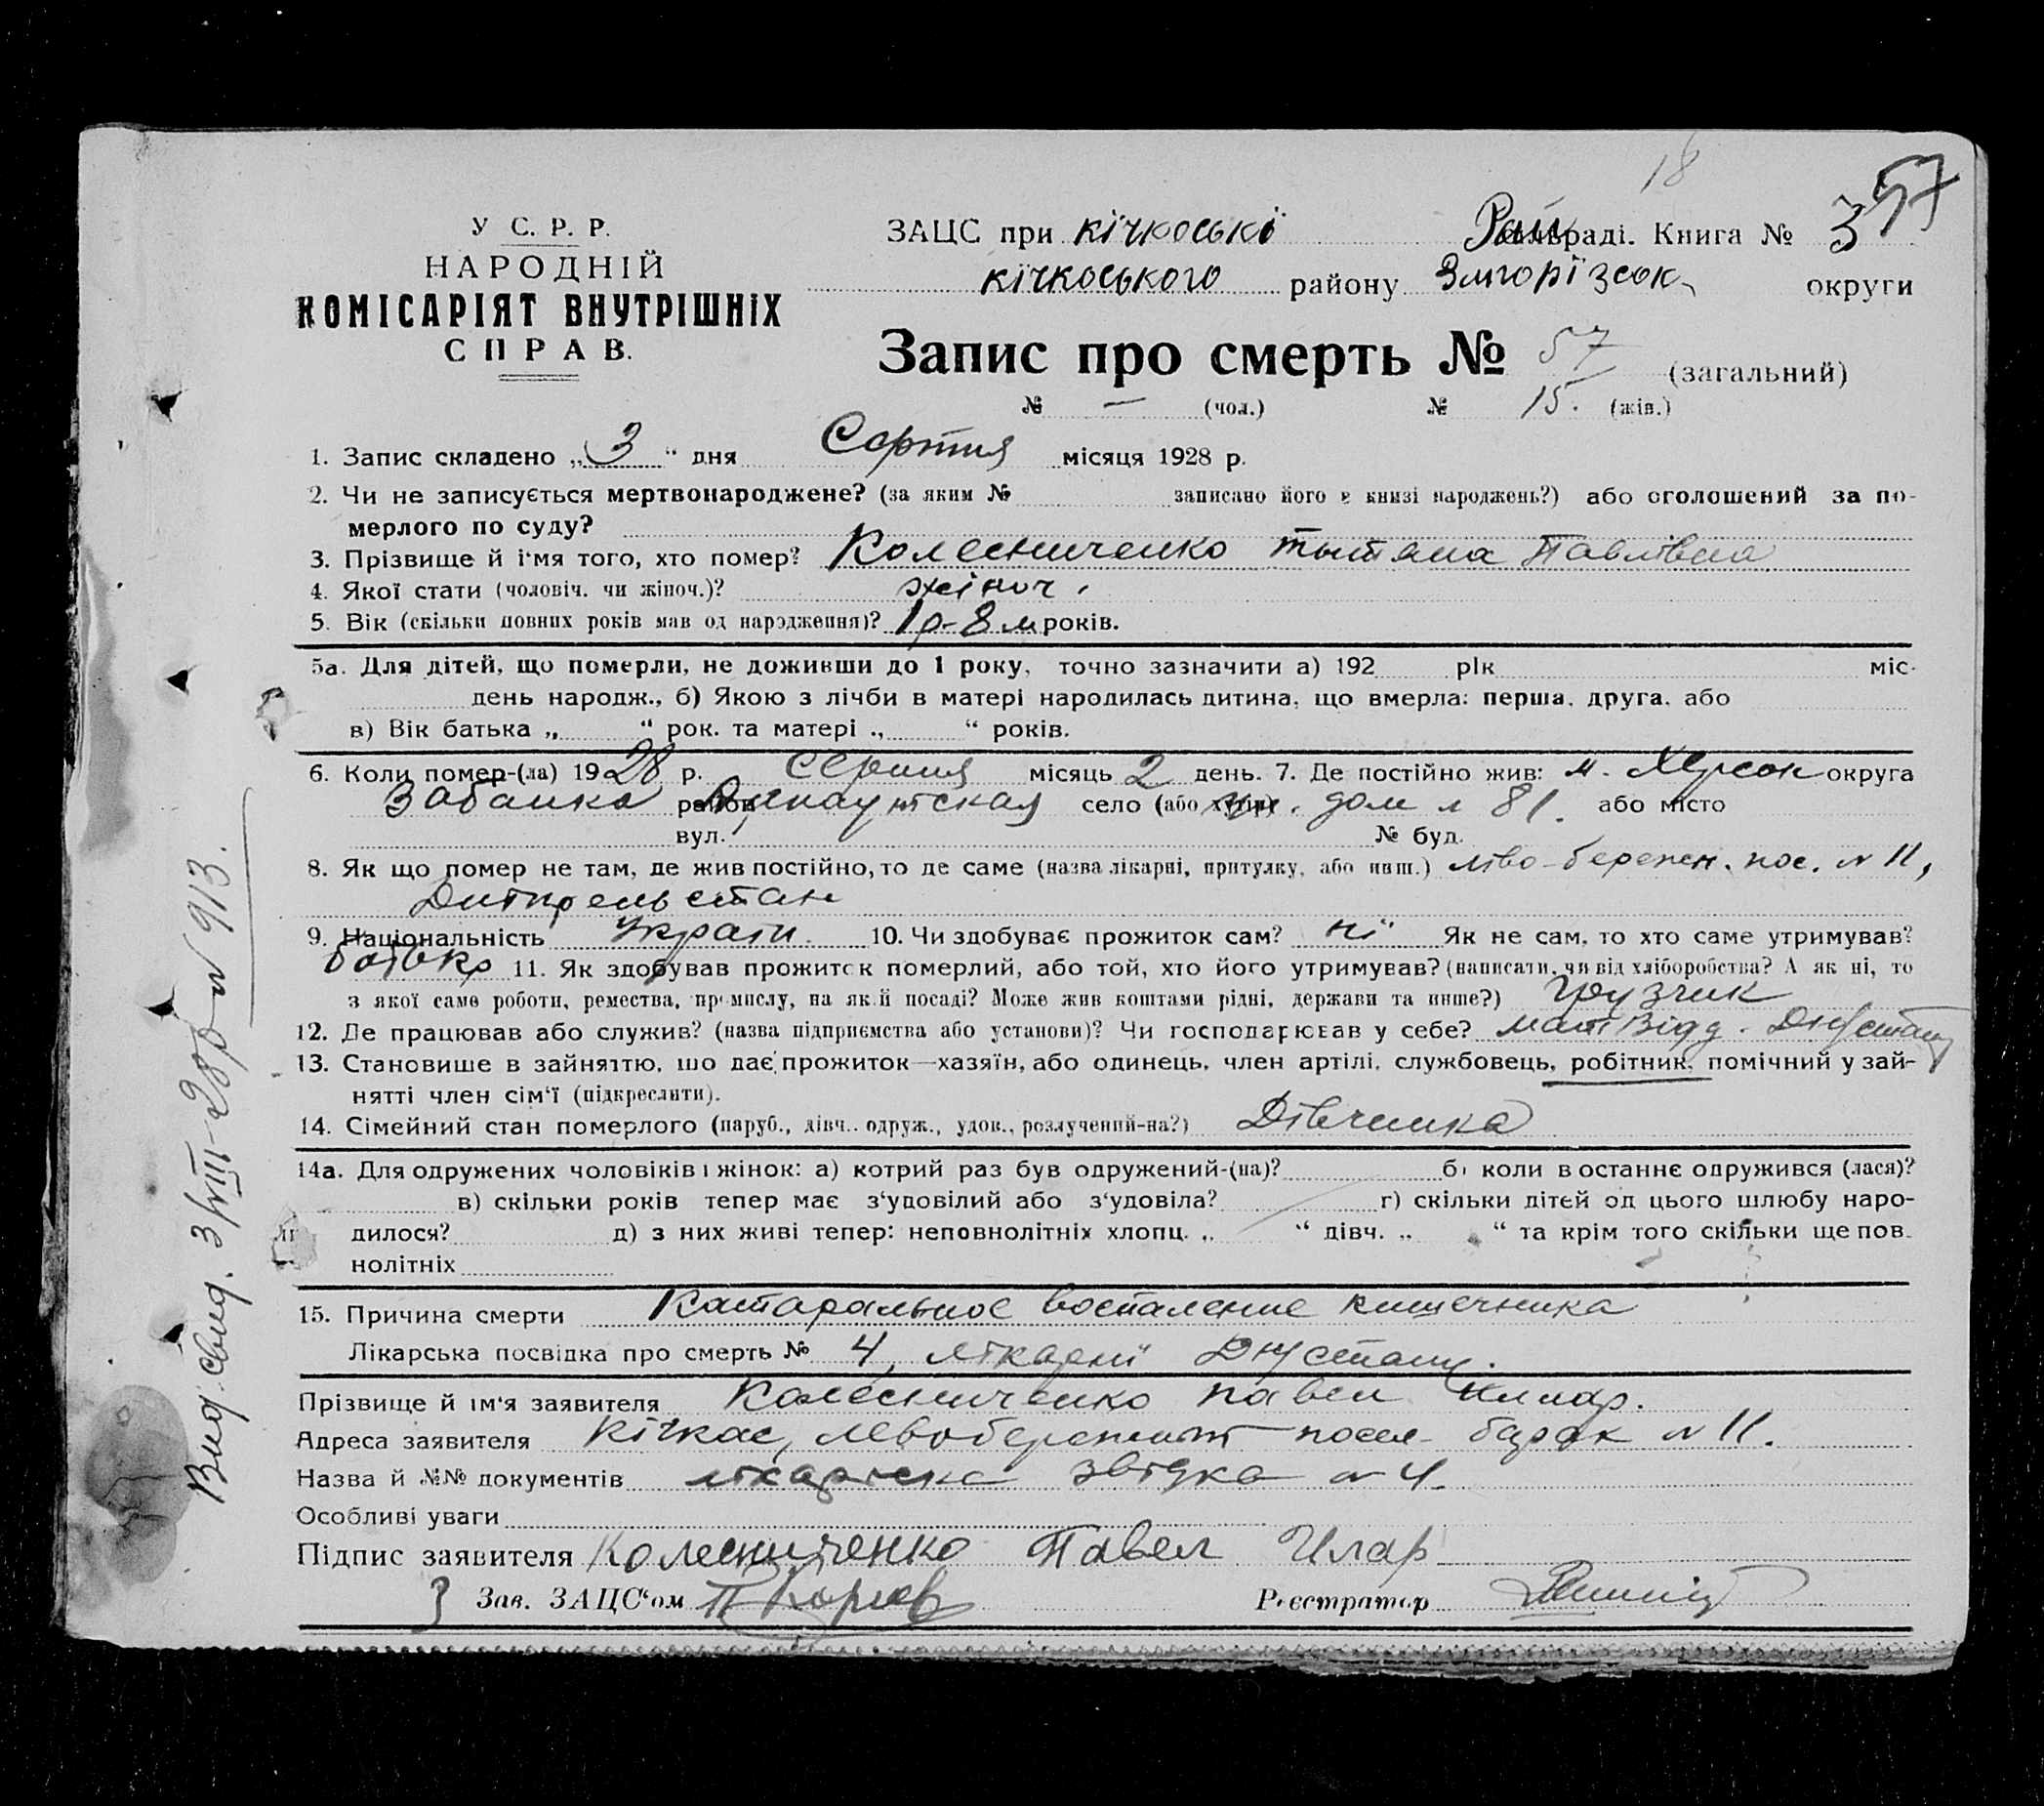 18
57
У С. Р. Р.
НАРОДНІЙ
КОМІСАРІЯТ ВНУТРІШНІХ
СПРАВ.
ЗАЦС при кічкоські Рай раді. Книга № 3
кічкоського району округи
Запис про смерть № 57 (загальний)
№ — (чол.) № 15. (жін.)
1. Запис складено „3“ дня Серпня місяця 1928 р.
2. Чи не записується мертвонароджене? (за яким № записано його в книзі народжень?) або оголошений за по-
мерлого по суду?
3. Прізвище й і'мя того, хто помер? Колесниченко Тытяна Павлівна
4. Якої стати (чоловіч. чи жіноч.)? жіноч.
5. Вік (скільки повних років мав од народження)? 1 р - 8 м років.
5а. Для дітей, що померли, не доживши до 1 року, точно зазначити а) 192 рік міс.
день народж., б) Якою з лічби в матері народилась дитина, що вмерла: перша, друга, або
в) Вік батька „ “ рок. та матері „ “ років.
6. Коли помер-(ла) 1928 р. Серпня місяць 2 день. 7. Де постійно жив: м. Херсон округа
Забалка район село (або хутір) дом № 81. або місто
вул. № буд.
8. Як що помер не там, де жив постійно, то де саме (назва лікарні, притулку, або инш.) ліво-бережн. пос. № 11,
9. Національність Україн. 10. Чи здобуває прожиток сам? ні Як не сам, то хто саме утримував?
батько 11. Як здобував прожиток померлий, або той, хто його утримував? (написати, чи від хліборобства? А як ні, то
з якої саме роботи, ремества, промислу, на якій посаді? Може жив коштами рідні, держави та инше?) Грузчик
12. Де працював або служив? (назва підприємства або установи)? Чи господарював у себе? мат Відд. Дніпстану
13. Становише в зайняттю, що дає прожиток—хазяїн, або одинець, член артілі, службовець, робітник, помічний у зай-
нятті член сім'ї (підкреслити).
14. Сімейний стан померлого (паруб., дівч., одруж., удов., розлучений-на?) Дівчинка
14а. Для одружених чоловіків і жінок: а) котрий раз був одружений-(на)? б) коли в останнє одружився (лася)?
в) скільки років тепер має з'удовілий або з'удовіла? г) скільки дітей од цього шлюбу наро-
дилося? д) з них живі тепер: неповнолітніх хлопц. „ “ дівч. „ “ та крім того скільки ще пов-
нолітніх
15. Причина смерти Катаральное воспаление кишечника
Лікарська посвідка про смерть № 4, лікарні Дніпстану.
Прізвище й ім'я заявителя Колесниченко Павел Илар.
Адреса заявителя Кічкас, левобережнт посел. барак № 11.
Назва й №№ документів лікарська звідка № 4.
Особливі уваги
Підпис заявителя Колесниченко Павел Илар
Зав. ЗАЦС'ом Реєстратор
Вид. свид. 3/VIII-28 р № 913.